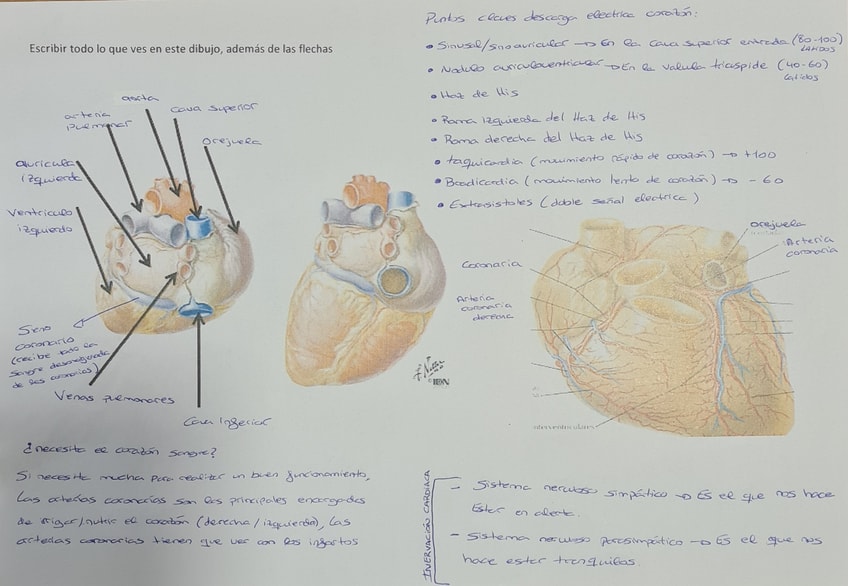 Escribir todo lo que ves en este dibujo, además de las flechas
aorta
arteria
pulmonar
Cava superior
Orejuela
auricula
izquierda
Ventriculo
izquierdo
Seno
coronario
(recibe toda la
sangre desoxigenada
de las coronarias)
Venas pulmonares
Cava Inferior
¿necesita el corazón sangre?
Si necesita mucha para realizar un buen funcionamiento,
Las arterias coronarias son las principales encargadas
de irrigar/nutrir el corazón (derecha/izquierda), las
arterias coronarias tienen que ver con los infartos
Puntos claves descarga electrica corazón:
• Sinusal/sinoauricular → En la cava superior entrada (80-100)
Latidos
• Nodulo auriculoventricular → En la valvula tricuspide (40-60)
Latidos
• Haz de His
• Rama Izquierda del Haz de His
• Rama derecha del Haz de His
• taquicardia (movimiento rápido de corazón) → +100
• Bradicardia (movimiento lento de corazón) → -60
• Extrasistoles (doble señal electrica)
F. Netter
© IDN
Orejuela
Arteria
coronaria
Coronaria
Arteria
coronaria
derecha
interventriculares
INERVACIÓN CARDIACA
- Sistema nervioso simpático → Es el que nos hace
Estar en alerta.
- Sistema nervioso parasimpático → Es el que nos
hace estar tranquilos.